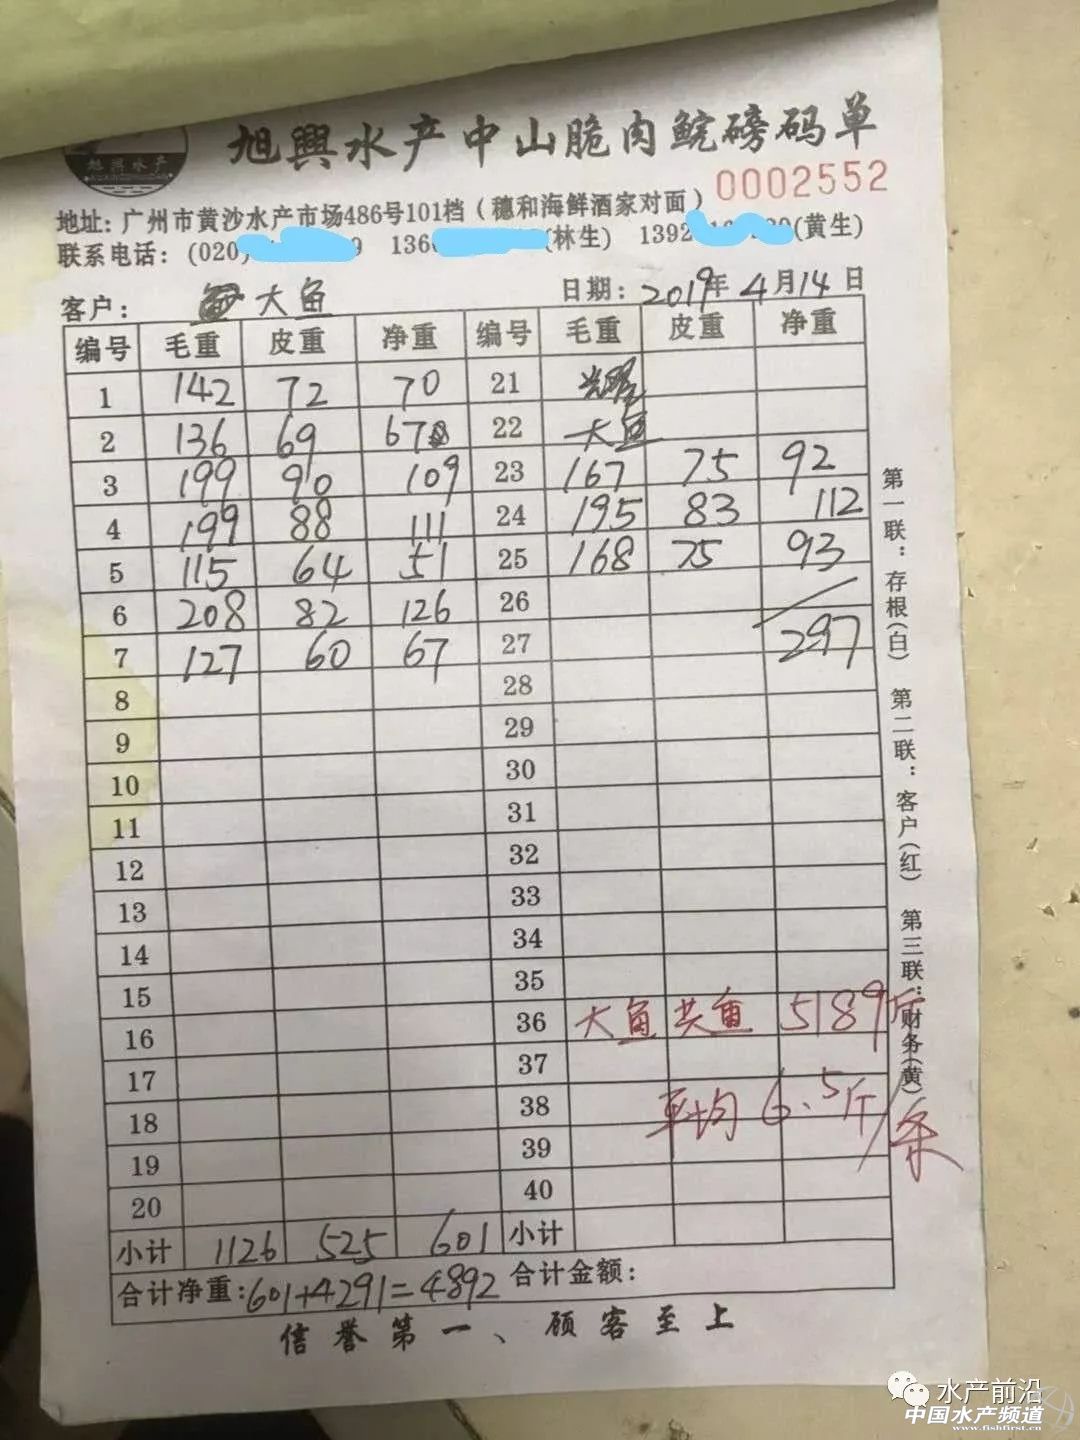 旭興水产
旭興水产中山脆肉鲩磅码单
0002552
地址: 广州市黄沙水产市场486号101档 (穗和海鲜酒家对面)
联系电话: (020) 9 136 (林生) 1392 (黄生)
客户: 大鱼 日期: 2019年4月14日
编号 毛重 皮重 净重 编号 毛重 皮重 净重
1 142 72 70 21
2 136 69 67 22 大鱼
3 199 90 109 23 167 75 92
4 199 88 111 24 195 83 112
5 115 64 51 25 168 75 93
6 208 82 126 26
7 127 60 67 27 297
8 28
9 29
10 30
11 31
12 32
13 33
14 34
15 35
16 36 大鱼共鱼 5189斤
17 37
18 38 平均 6.5斤/条
19 39
20 40
小计 1126 525 601 小计
合计净重: 601+4291=4892 合计金额:
信誉第一、顾客至上
第一联: 存根(白) 第二联: 客户(红) 第三联: 财务(黄)
水产前沿
中国水产频道
www.fishfirst.cn